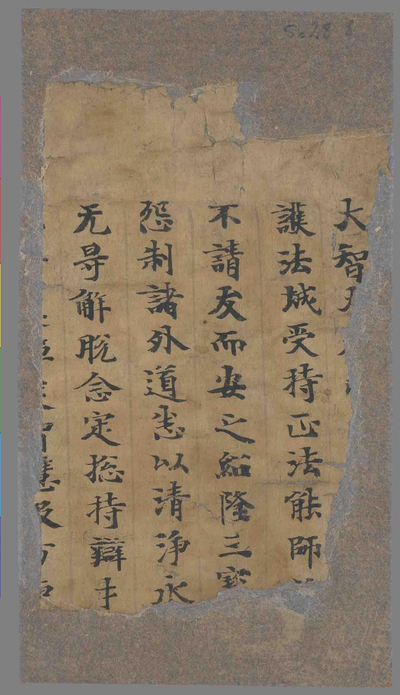 大智
護法城受持正法能師
不請友而安之紹隆三寳
怨制諸外道悉以清淨永
无㝵解脫念定揔持辯才
慧及